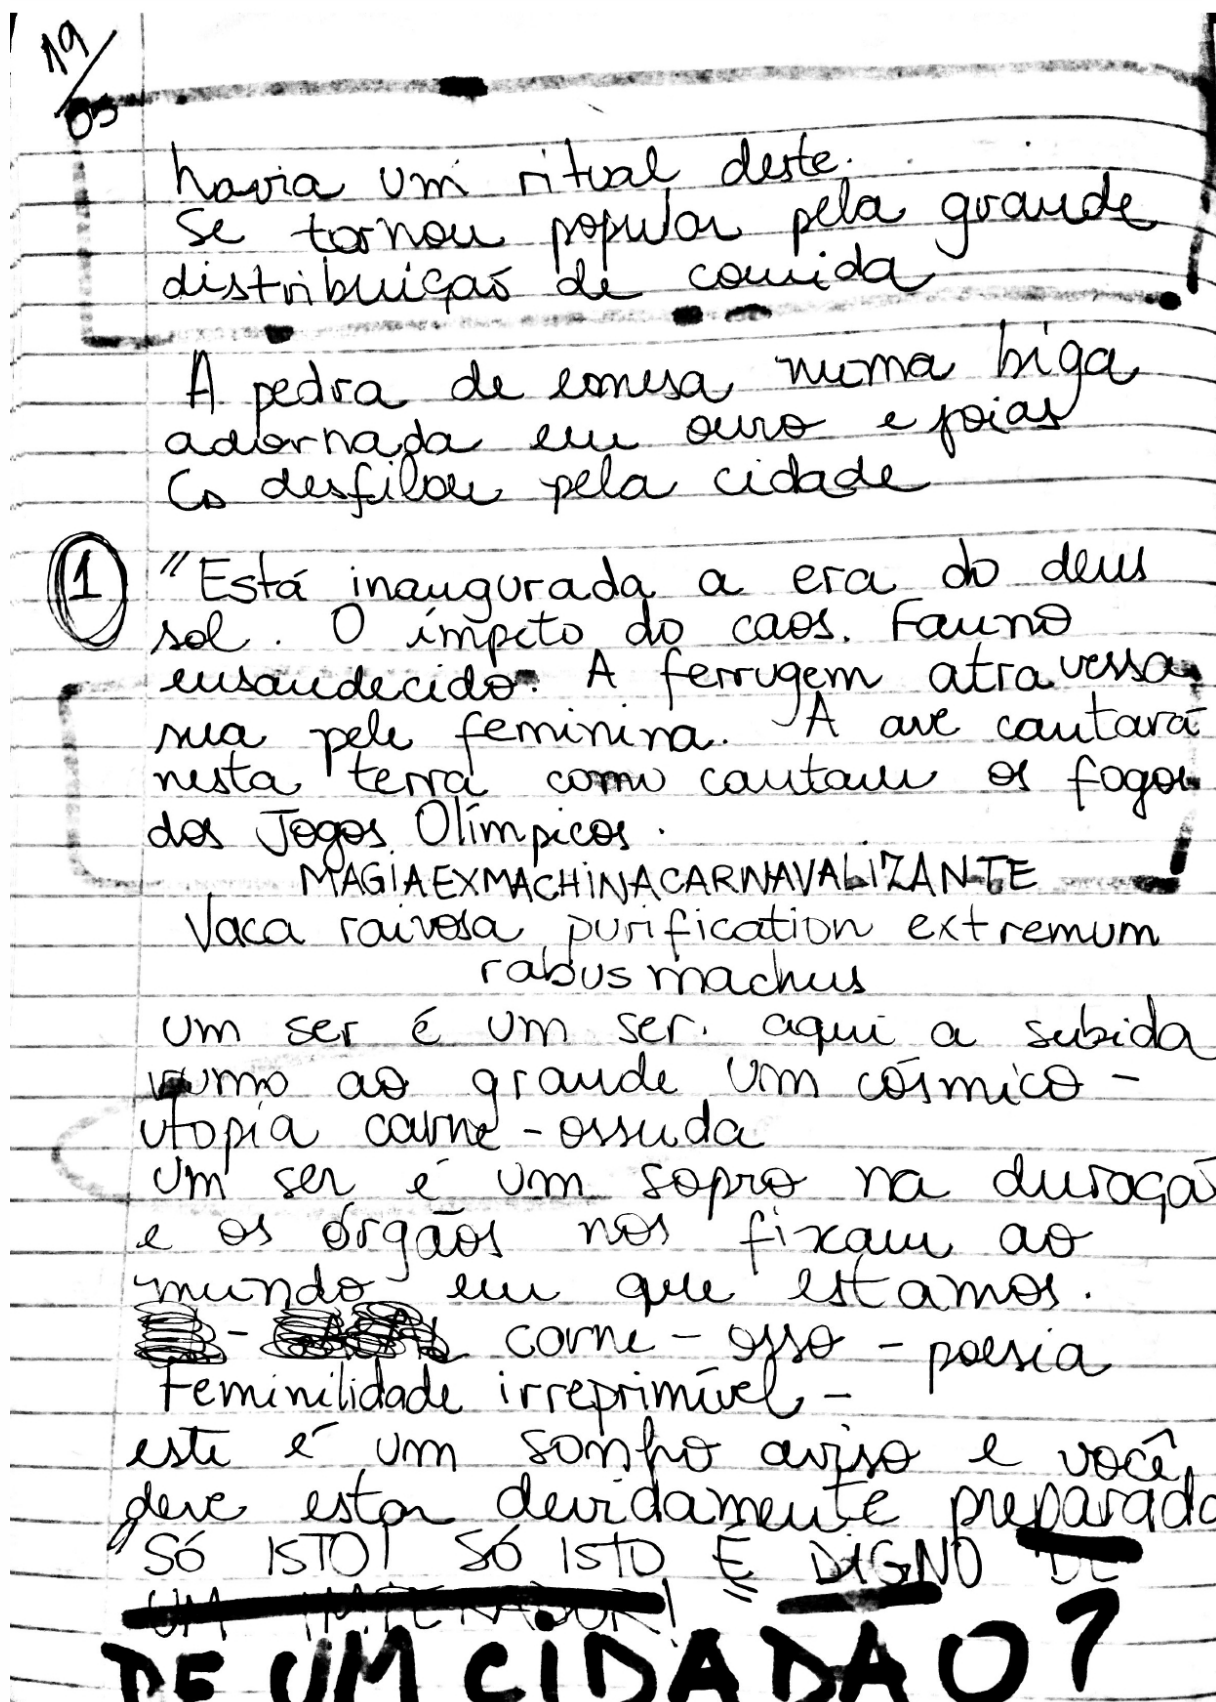 19/05
havia um ritual deste.
Se tornou popular pela grande
distribuição de comida
A pedra de emesa numa biga
adornada em ouro e joias
Co desfilou pela cidade
1 "Está inaugurada a era do deus
sol. O ímpeto do caos. Fauno
ensandecido. A ferrugem atravessa
sua pele feminina. A ave cantará
nesta terra como cantam os fogos
dos Jogos Olímpicos.
MAGIAEXMACHINACARNAVALIZANTE
Vaca raivosa purification extremum
rabus machus
um ser é um ser. aqui a subida
rumo ao grande um cósmico -
utopia carne - ossuda
um ser é um sopro na duração
e os órgãos nos fixam ao
mundo em que estamos.
- carne - osso - poesia
Feminilidade irreprimível -
este é um sonho aviso e você
deve estar devidamente preparado
SÓ ISTO! SÓ ISTO É DIGNO DE
UM IMPERADOR!
DE UM CIDADÃO?